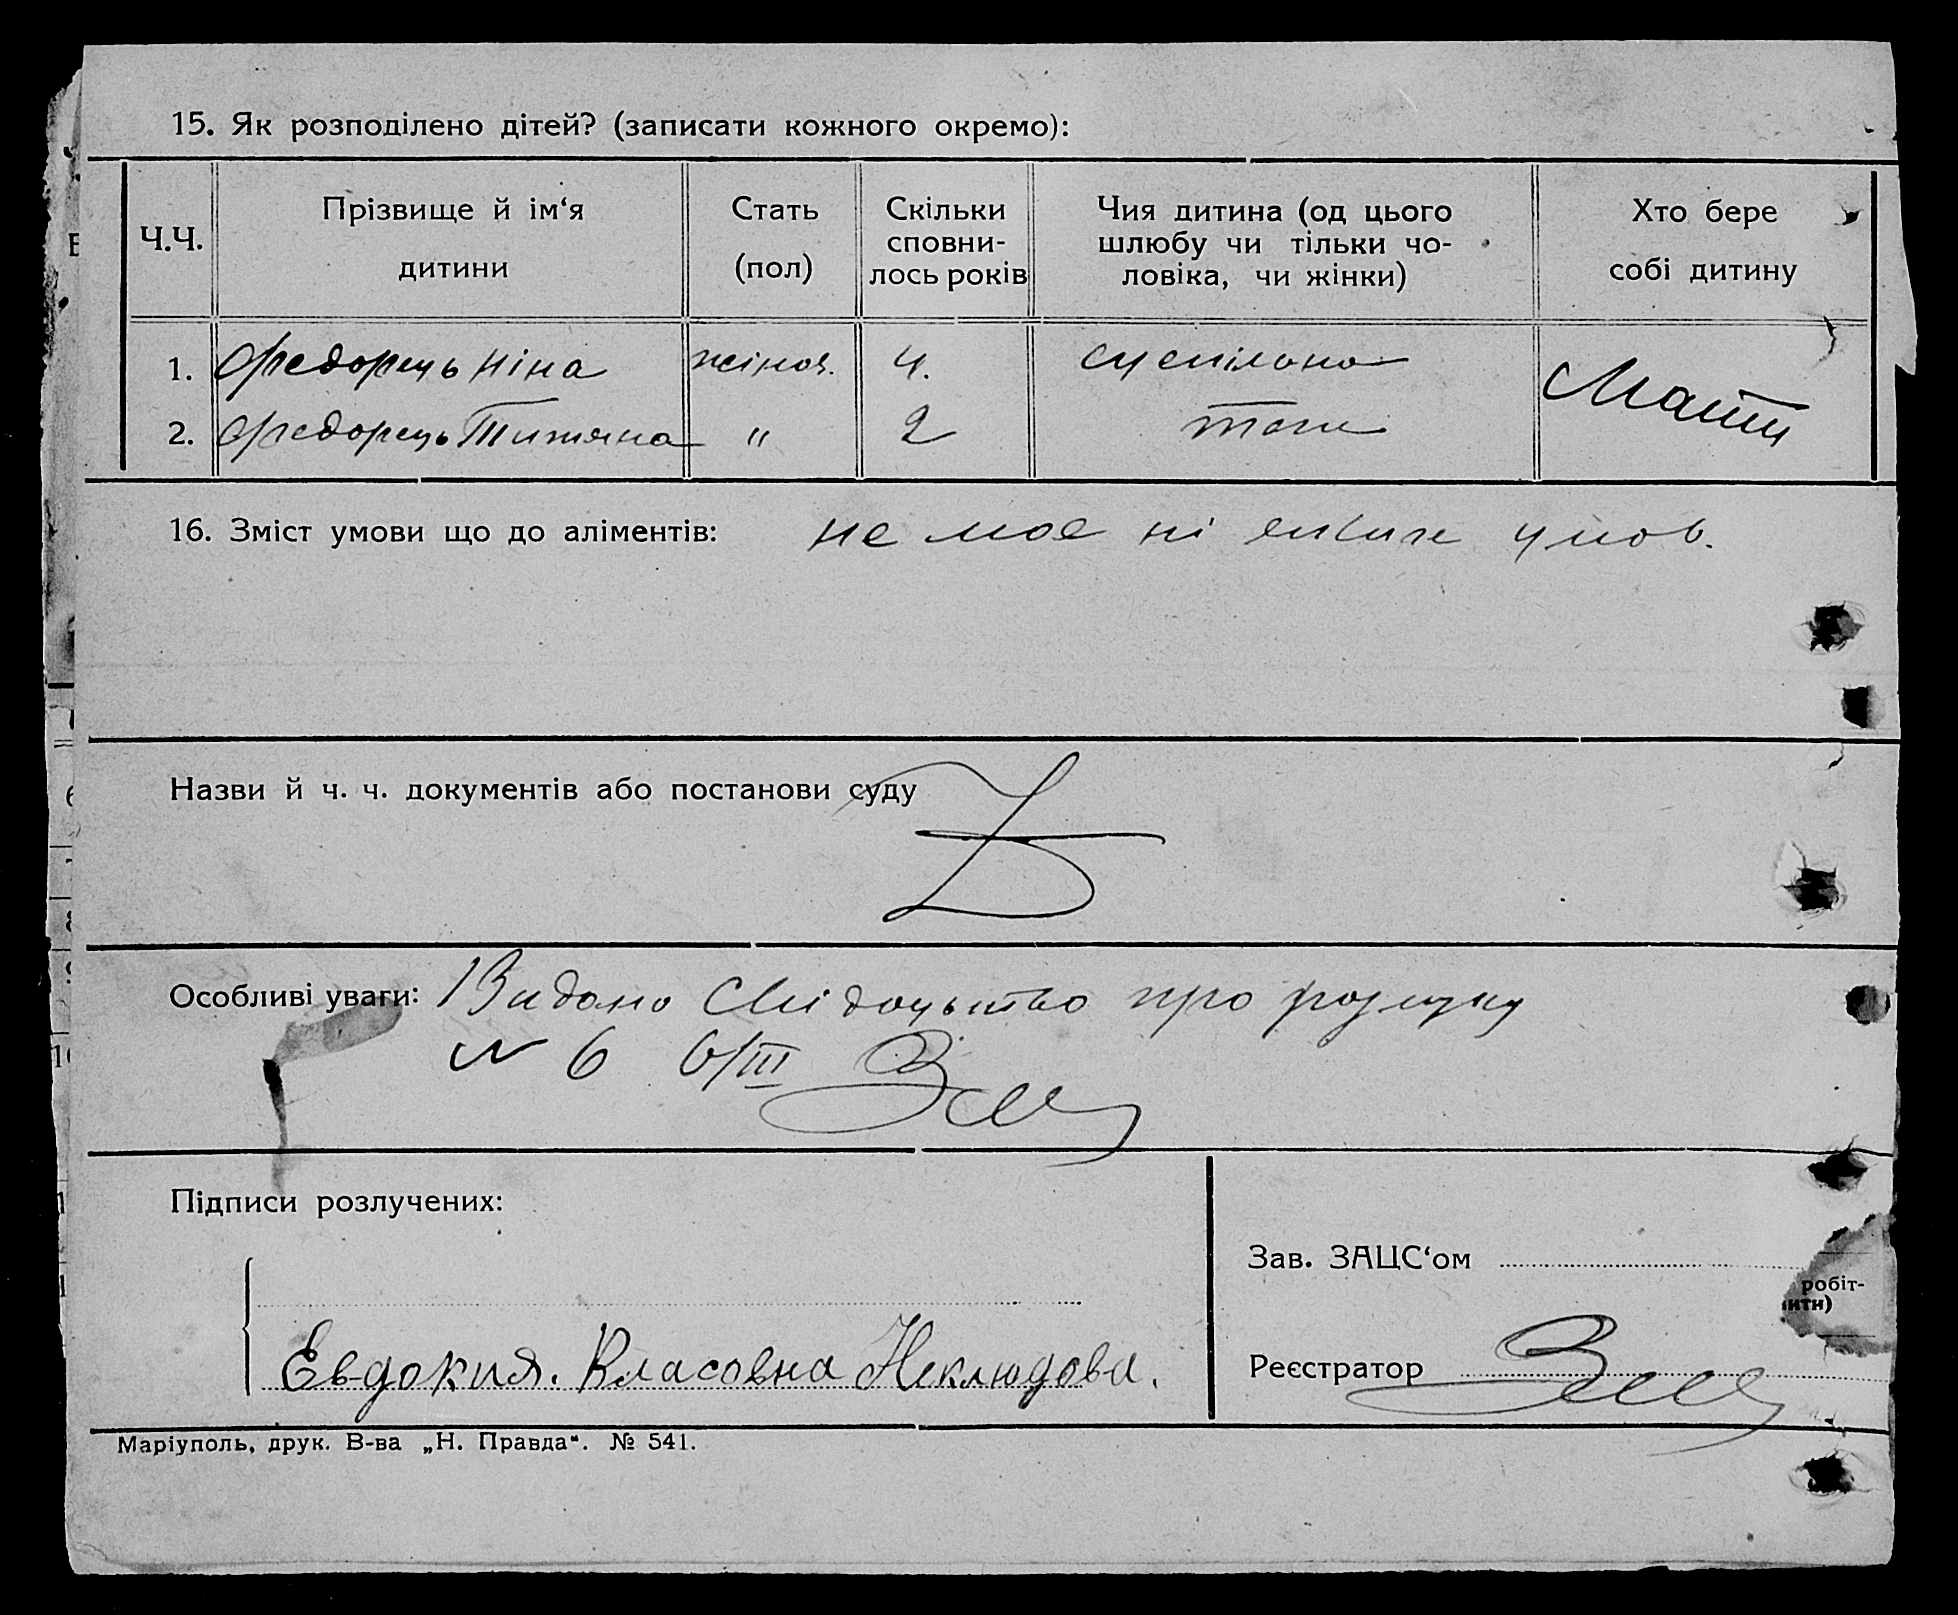 15. Як розподілено дітей? (записати кожного окремо):
Ч.Ч.
Прізвище й ім‘я
дитини
Стать
(пол)
Скільки
сповни-
лось років
Чия дитина (од цього
шлюбу чи тільки чо-
ловіка, чи жінки)
Хто бере
собі дитину
1. Федорець Ніна жіноч. 4. суспільна
Мати
2. Федорець Титяна " 2 тож
16. Зміст умови що до аліментів: не мае ні яких умов.
Назви й ч. ч. документів або постанови суду
Особливі уваги: Видано свідоцьтво про розлуку
N 6 6/III
Підписи розлучених:
Зав. ЗАЦС‘ом
робіт-
ити)
Евдокия. Власовна Неклюдова.
Реєстратор
Маріуполь, друк. В-ва „Н. Правда“. № 541.